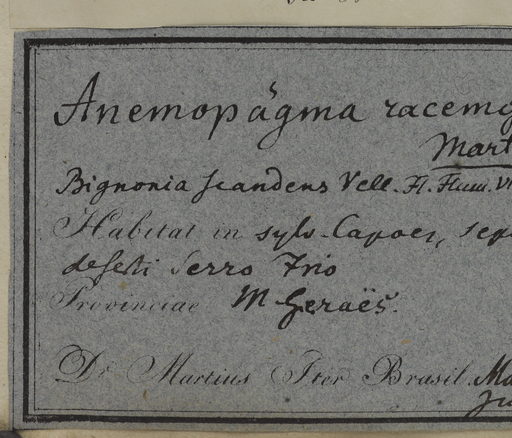 Anemopágma racemo
Mart
Bignonia scandens Vell. Fl. Flum. VI
Habitat in sylv. Capoes, sep
deserti Serro Frio
Provinciae M Geraës.
Dr. Martius Iter Brasil. Ma
Ju